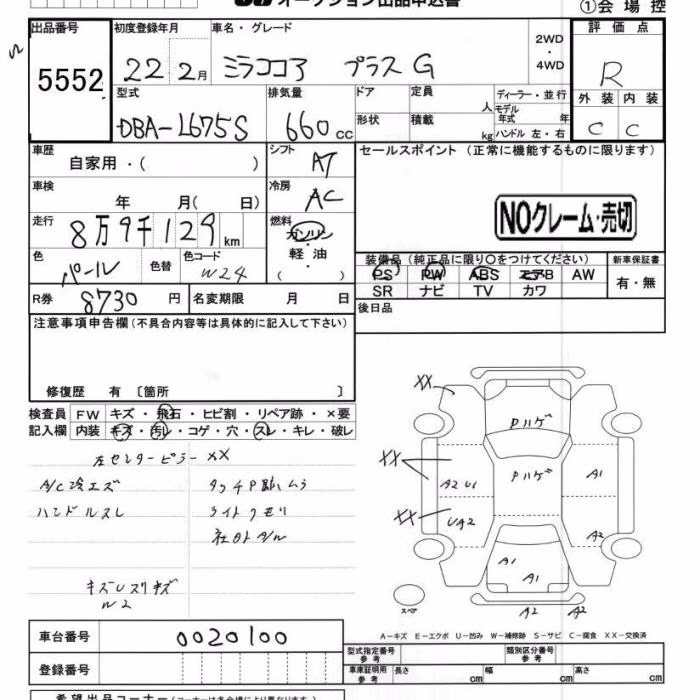 オークション出品申込書
①会 場 控
出品番号
5552
初度登録年月
22 2月
車名・グレード
ミラココア プラスG
2WD
・
4WD
評 価 点
R
外 装 内 装
C C
型式
DBA-L675S
排気量
660 cc
ドア
形状
定員
人
積載
kg
ディーラー・並 行
モデル
年式 年
ハンドル 左・右
車歴
自家用・( )
シフト
AT
セールスポイント (正常に機能するものに限ります)
車検
年 月( 日)
冷房
AC
NOクレーム・売切
走行
8万9千129 km
燃料
ガソリン
軽 油
( )
色
パール
色替
色コード
W24
装備品(純正品に限り○をつけてください)
PS PW ABS エアB AW
SR ナビ TV カワ
新車保証書
有・無
R券
8730 円
名変期限 月 日
後日品
注意事項申告欄(不具合内容等は具体的に記入して下さい)
修復歴 有 〔箇所 〕
検査員
記入欄
FW キズ・飛石・ヒビ割・リペア跡・×要
内装 キズ・汚レ・コゲ・穴・スレ・キレ・破レ
左センターピラー XX
A/C冷エズ
ハンドルスレ
タッチP跡ムラ
ライトクモリ
社外A/W
W2
XX
Pハゲ
XX
Pハゲ
A2 U1
A1
XX
UA2
A2
A1
A1
スペア
A2
A2
A-キズ E-エクボ U-凹み W-補修跡 S-サビ C-腐食 XX-交換済
車台番号
0020100
登録番号
型式指定番号
参 考
類別区分番号
参 考
車庫証明用
参 考
長さ cm
幅 cm
高さ cm
希望出品コーナー